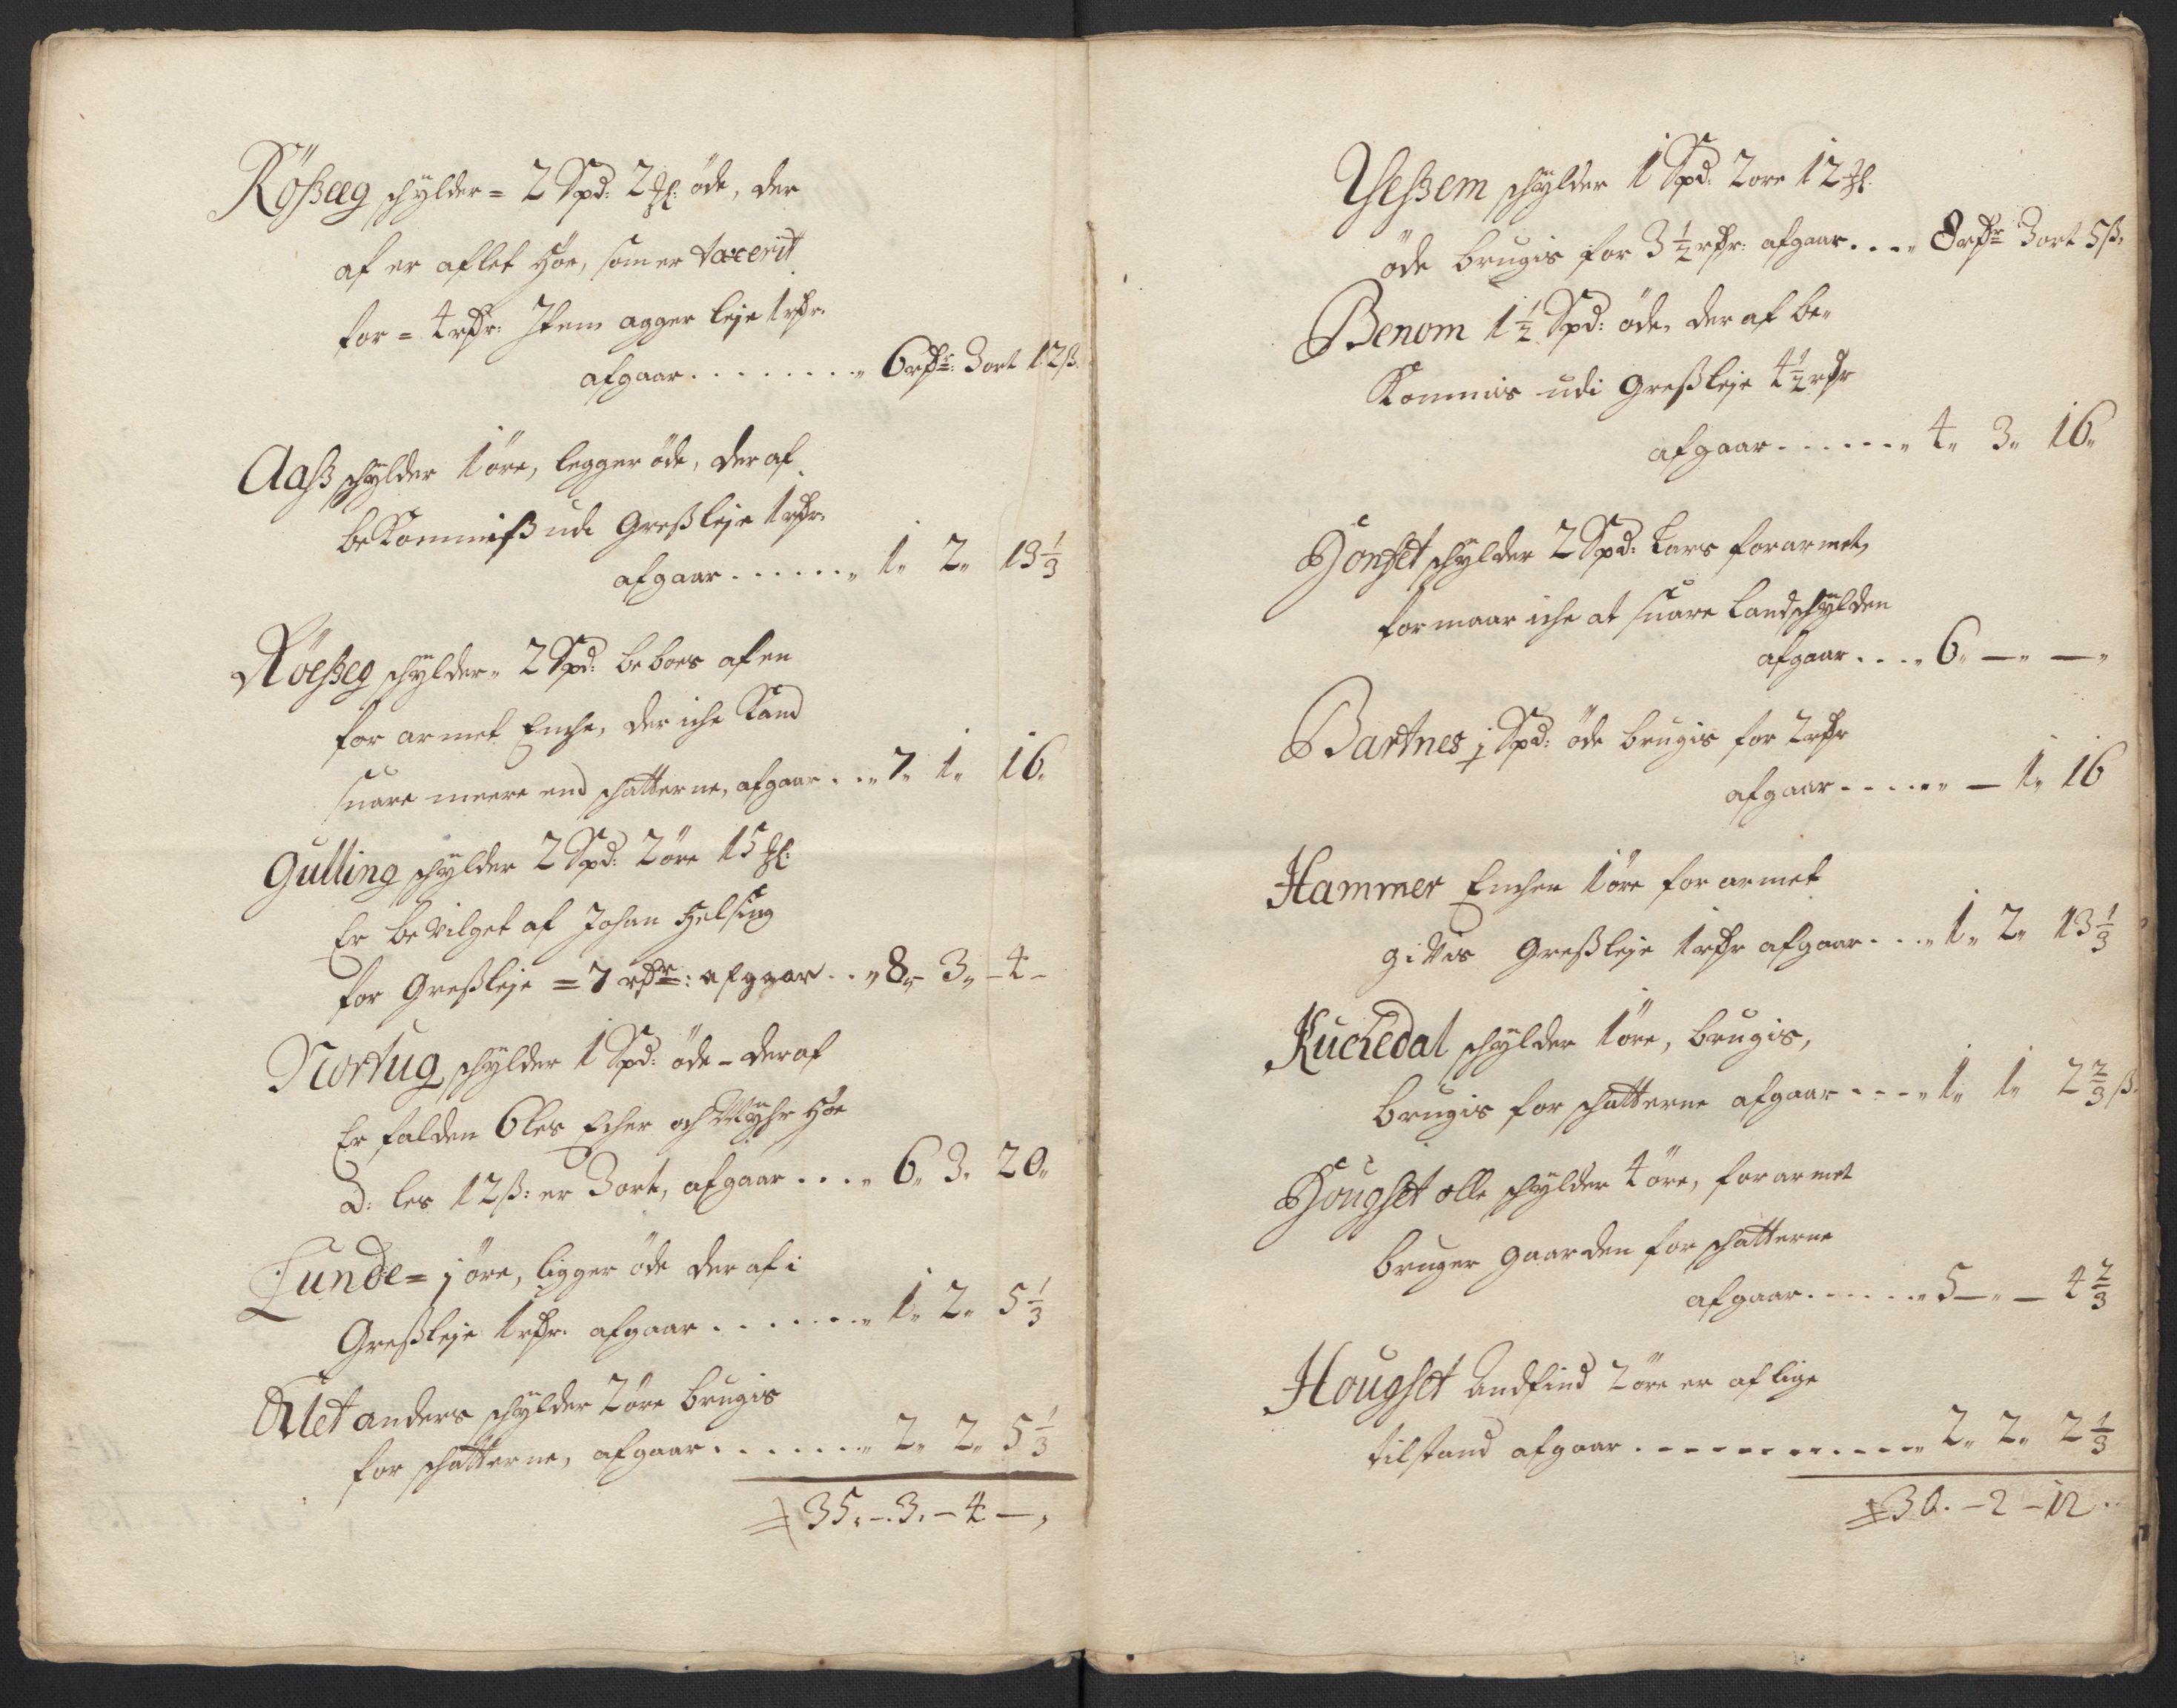 Rößæg schylder = 2 Spd: 2 ℔: öde, der
af er aflet Höe, som er taxerit
for = 4 rdr: Item agger leje 1 rdr.
afgaar . . . . . . . . „ 6 rdr: 3 ort 12 ß.
Aaß schylder 1 öre, legger öde, der af
bekommiß udi Greßleje 1 rdr.
afgaar . . . . . . „ 1„ 2„ 13 1/3
Röeßeg schylder„ 2 Spd: beboes af en
forarmet Enche, der iche kand
suare meere end schatterne, afgaar . . „ 7„ 1„ 16„
Gulling schylder 2 Spd: 2 öre 15 ℔:
Er bevilget af Johan Helsing
for Greßleje = 7 rdr: afgaar . . „ 8„ 3„ - 4 -
Nortug schylder 1 Spd: öde - der af
Er falden 6 les Echer och Myhr Höe
â: les 12 ß: er 3 ort, afgaar . . . „ 6„ 3„ 20„
Lunde = j öre, ligger öde der af i
Greßleje 1 rdr. afgaar . . . . . . . „ 1„ 2„ 5 1/3
Qlet anders schylder 2 öre brugis
for schatterne, afgaar . . . . . . . „ 2„ 2„ 5 1/3
35. - 3. - 4 -,
Yeßem schylder 1 Spd: 2 ore 12 ℔.
öde brugis for 3 1/2 rdr: afgaar . . . „ 8 rdr 3 ort 5 ß.
Benom 1 1/2 Spd: öde, der af be„
kommis udi Greßleje 4 1/2 rdr
afgaar . . . . . . „ 4„ 3„ 16„
Honset schylder 2 Spd: Lars forarmet,
formaar iche at suare Landschylden
afgaar . . . „ 6„ —„ —„
Bartnes j Spd: öde brugis for 2 rdr
afgaar . . . . . . „ — 1„ 16
Hammer Enchen 1 öre forarmet
givis Greßleje 1 rdr afgaar . . . „ 1„ 2„ 13 1/3
Kuchedal schylder 1 öre, brugis,
brugis for schatterne afgaar . . . . „ 1„ 1„ 2 2/3 ß.
Hougset olle schylder 4 öre, forarmet
bruger gaarden for schatterne
afgaar . . . . . . „ 5 —„ — 4 2/3
Hougset Andfind 2 öre er af lige
tilstand afgaar . . . . . . . . . . . . „ 2„ 2„ 2 1/3
30. - 2 - 12 . .